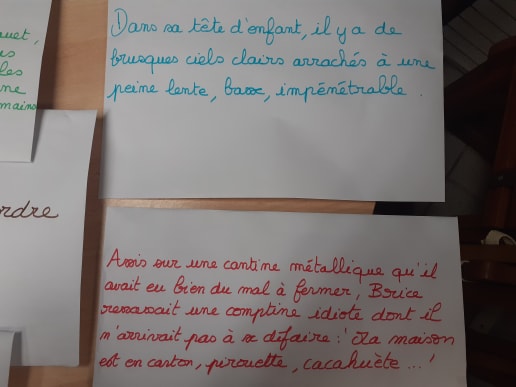 uet,
s
les
ne
mains
ordre
Dans sa tête d'enfant, il y a de
brusques ciels clairs arrachés à une
peine lente, basse, impénétrable.
Assis sur une cantine métallique qu'il
avait eu bien du mal à fermer, Brice
ressassait une comptine idiote dont il
n'arrivait pas à se défaire : 'La maison
est en carton, pirouette, cacahuète...'